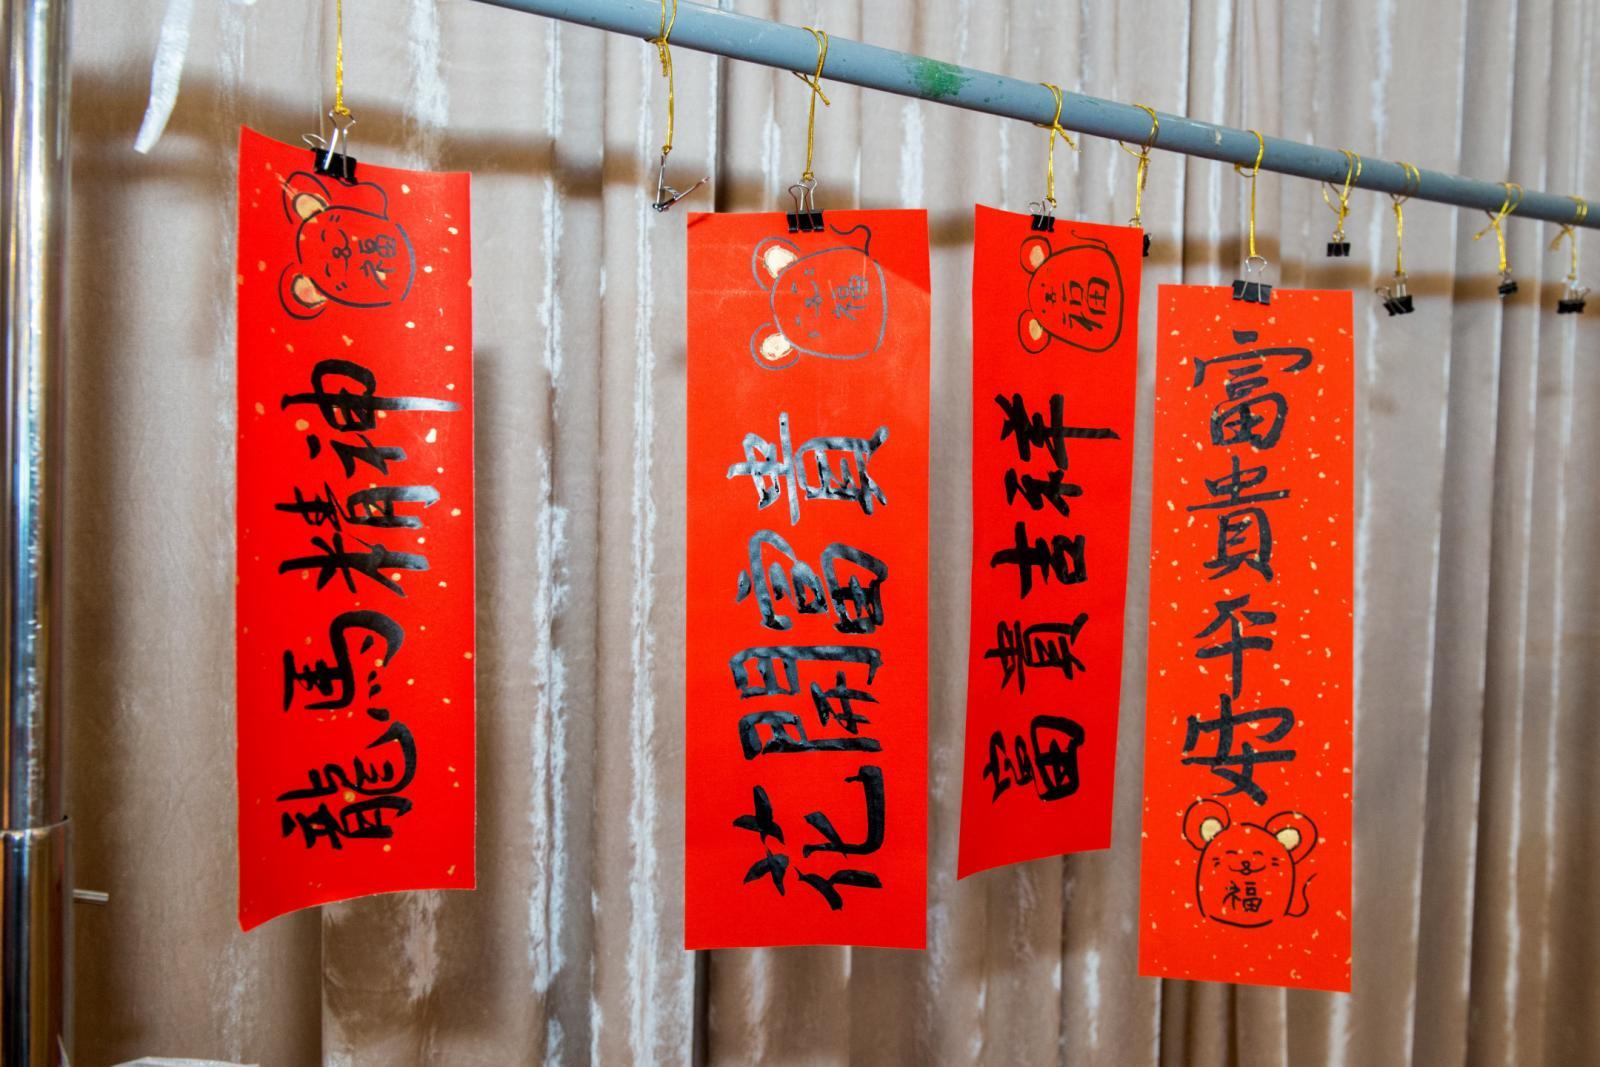 龍馬精神
福
花開富貴
福
富貴吉祥
福
富貴平安
福